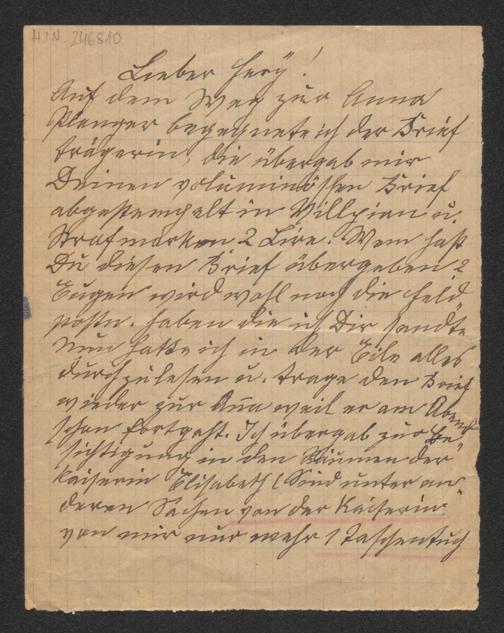 H.I.N. 246810
Lieber
Auf dem Weg zur Anna
Plenger begegnete ich der Brief
trägerin, die übergab mir
Deinen voluminösen Brief
abgestempelt in Villpian u.
Strafmarken 2 Lire. Wem hast
Du diesen Brief übergeben?
Eugen wird wohl noch die Feld
postn. haben die ich Dir sandte
Nun hatte ich in der Eile alles
durchzulesen u. trage den Brief
wieder zur Anna weil er am Abend
schon fortgeht. Ich übergab zur Be"
sichtigung in den Räumen der
Kaiserin Elisabeth (Sind unter an"
deren Sachen von der Kaiserin"
von mir nur mehr 1 Taschentuch